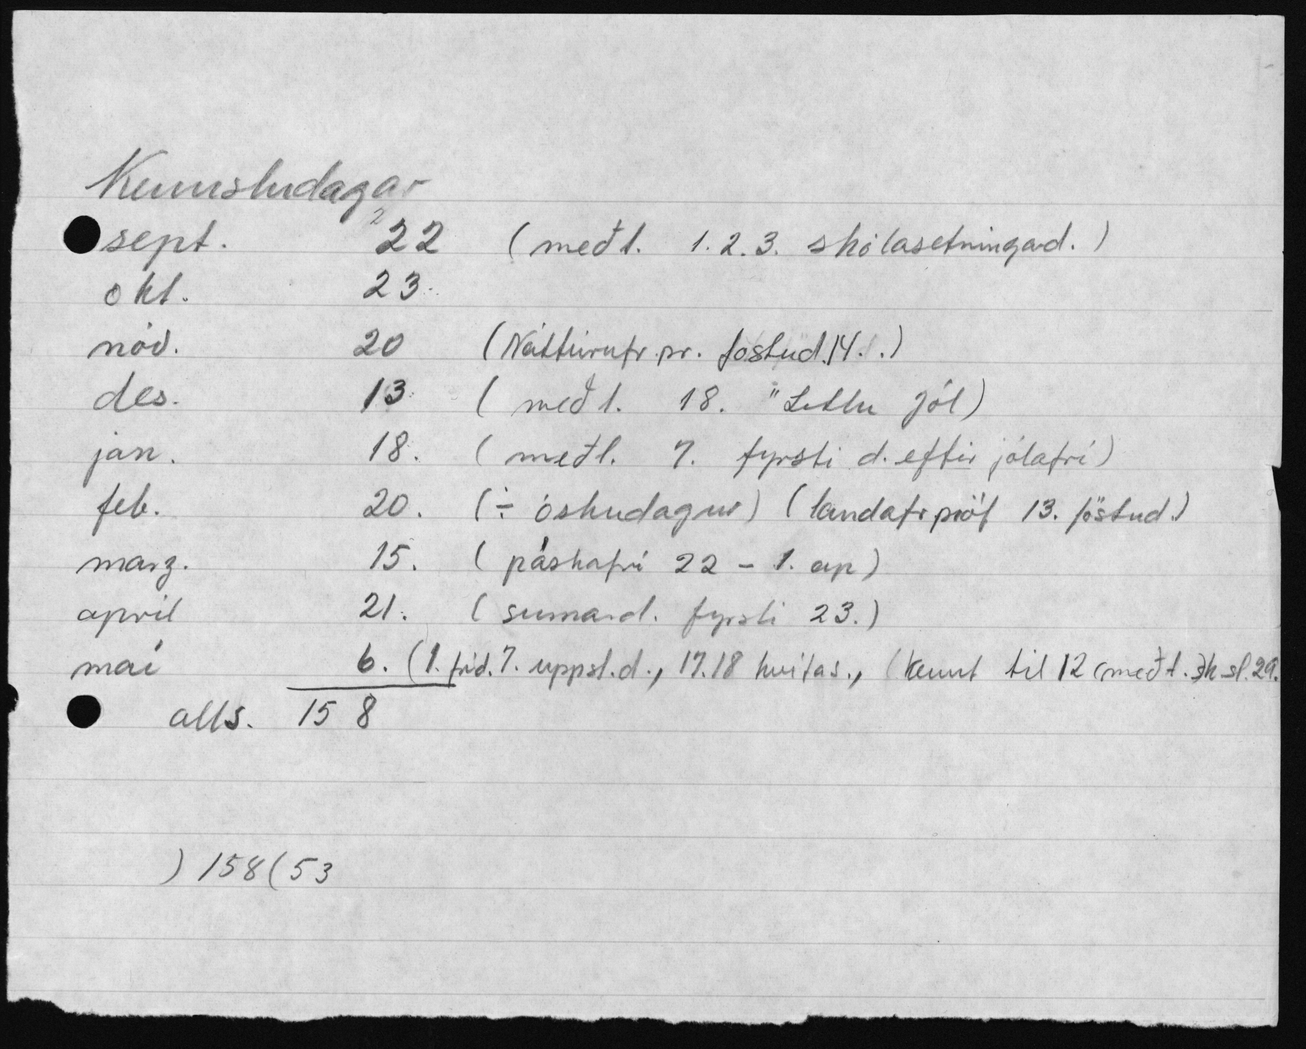 Kennsludagar
sept. 22 (meðt. 1.2.3. skólasetningard.)
okt. 23.
nóv. 20 (Náttúrufr.pr. föstud. 14. .)
des. 13. (meðt. 18. "Litlu jól)
jan. 18. (meðt. 7. fyrsti d. eftir jólafrí)
feb. 20. (÷ öskudagur) (landafrpróf 13. föstud.)
marz. 15. (páskafrí 22 - 1. ap)
apríl 21. (sumard. fyrsti 23.)
maí 6. (1. fríd. 7. uppst.d., 17.18 hvítas., (kennt til 12 (meðt. sk.sl. 29.
alls. 158
) 158 ( 53